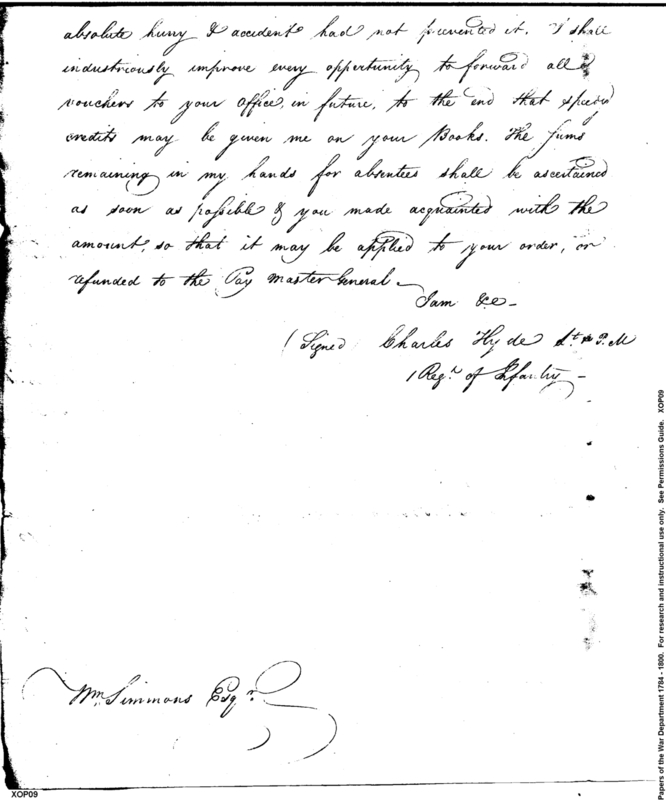 absolute hurry & accident had not prevented it. I shall
industriously improve every oppertunity to forward all
vouchers to your office, in future, to the end that speedy
credits may be given me on your Books. The sums
remaining in my hands for absentees shall be ascertained
as soon as possible & you made acquainted with the
amount, so that it may be applied to your order, or
refunded to the Pay Master General.
I am &c
(Signed Charles Hyde Lt & P.M
1 Regt. of Infantry
Wm. Simmons Esqr.
XOP09
Papers of the War Department 1784 - 1800. For research and instructional use only. See Permissions Guide. XOP09